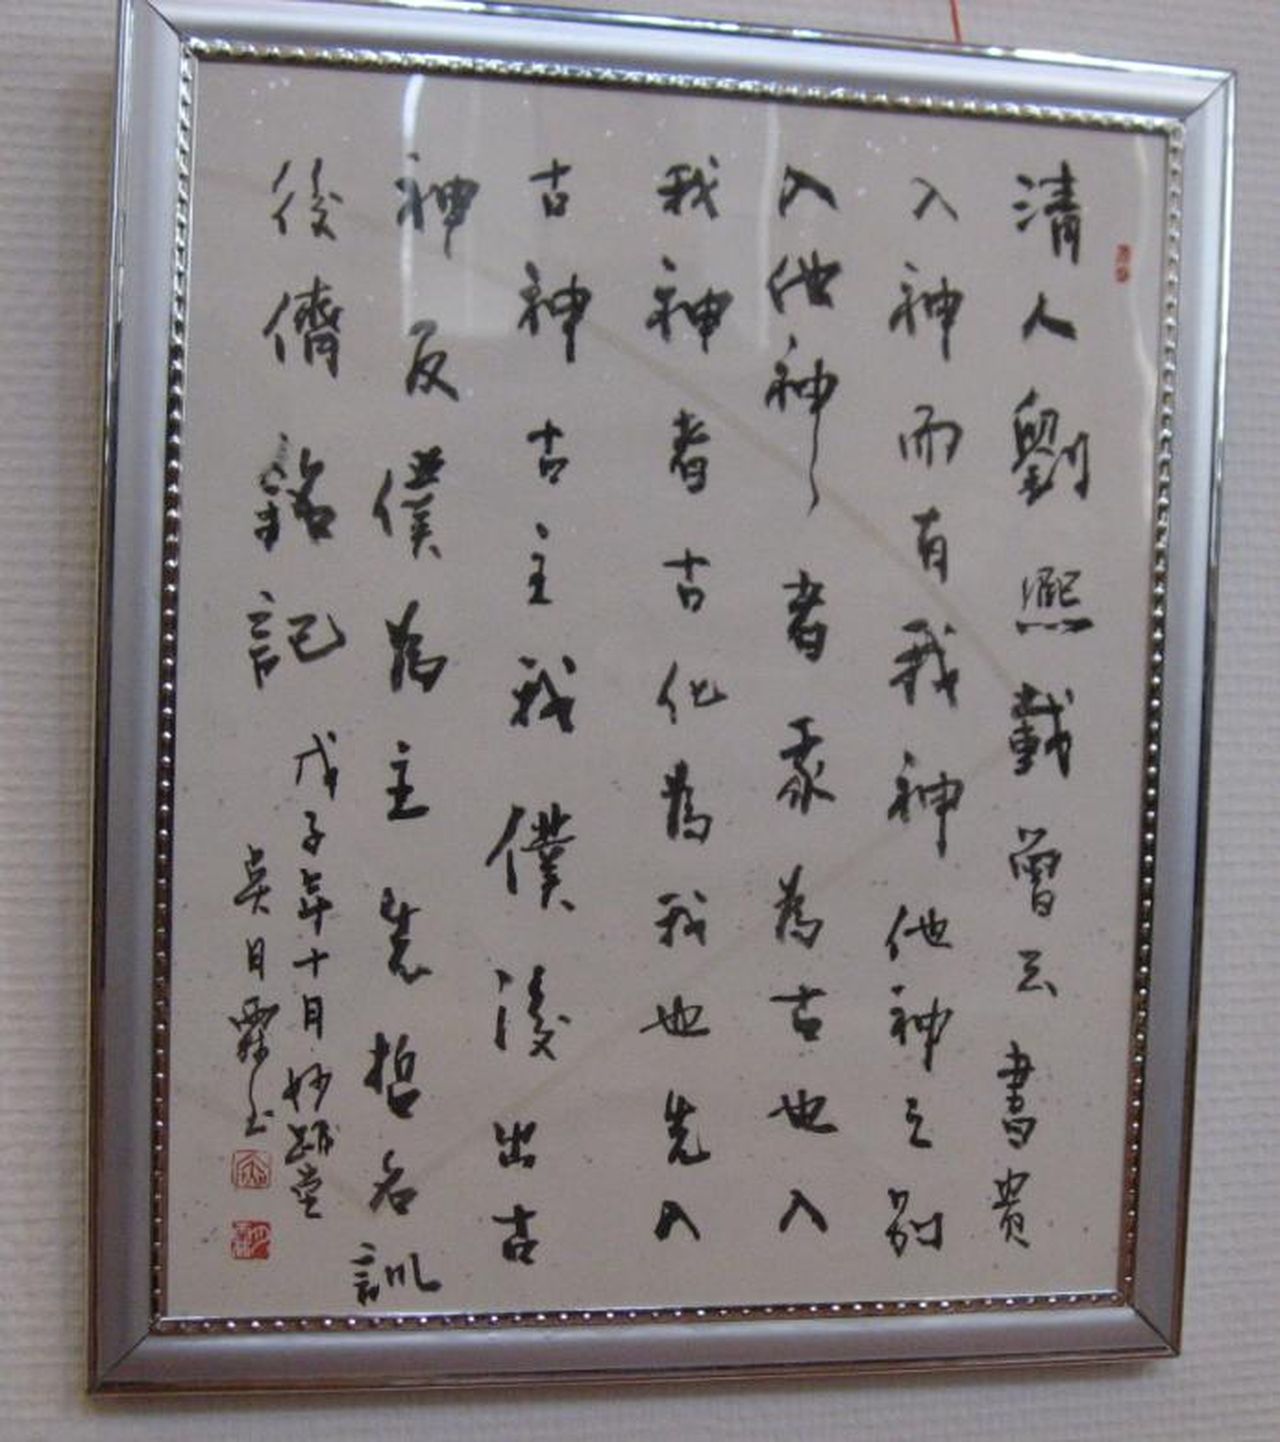 清人劉熙載曾云書貴
入神而有我神他神之別
入他神者我為古也入
我神者古化為我也先入
古神古主我僕後出古
神反僕為主先哲名訓
後儕銘記
戊子年十月妙 堂
吳日霖書